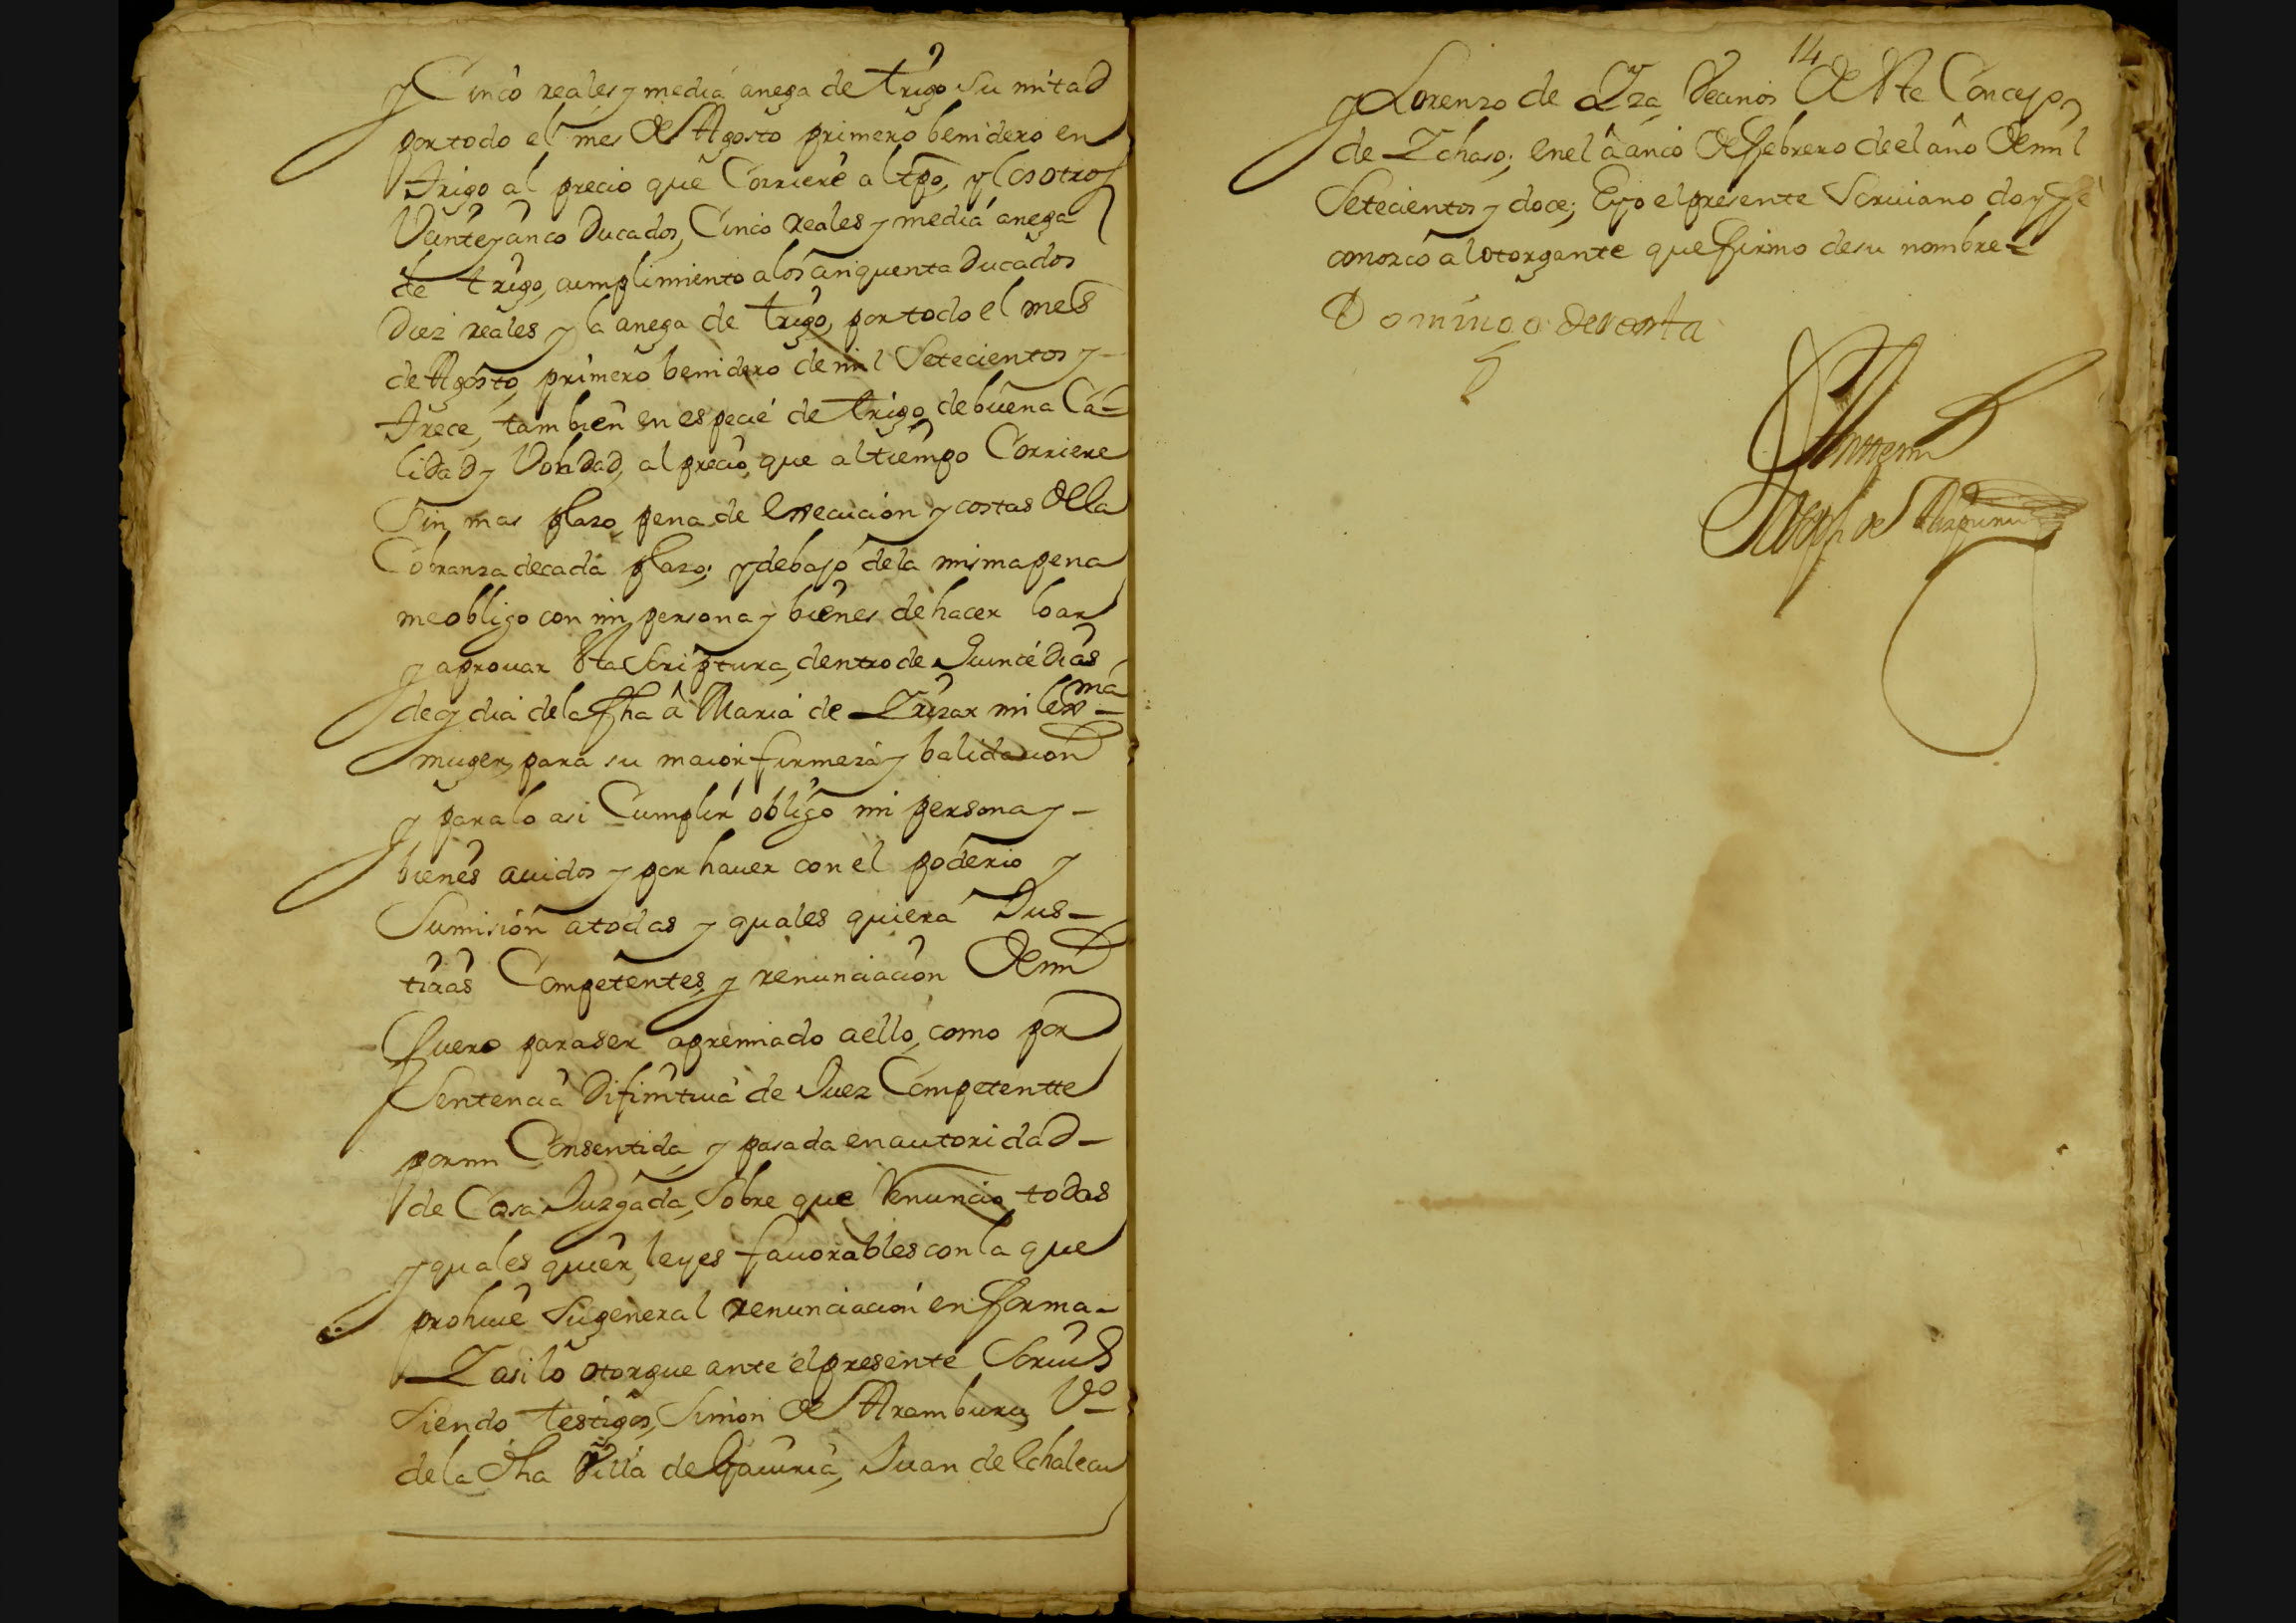 y Cinco reales y media anega de trigo su mitad
por todo el mes de Agosto primero benidero en
trigo al precio que Corriere al tpo, y los otros
Veinte y cinco Ducados, Cinco reales y media anega
de trigo, cumplimiento a los cinquenta Ducados
Diez reales y la anega de trigo, por todo el mes
de Agosto, primero benidero de mil Setecientos y
trece, tambien en especie de trigo de buena Ca-
lidad y Vondad, al precio que al tiempo Corriere
Sin mas plazo, pena de execucion y costas de la
Cobranza de cada plazo; y debajo de la misma pena
me obligo con mi persona y bienes de hacer loar
y aprouar esta Scriptura, dentro de Quince dias
de oy dia de la fha â Maria de Yrizar mi lexma
muger, para su maior firmeza y balidacion
y para lo asi Cumplir obligo mi persona y -
bienes auidos y por hauer con el poderio y
Sumision a todas y quales quiera Jus-
ticias Competentes, y renunciacion de mi
fuero para ser apremiado a ello, como por
Sentencia Difinitiua de Juez Competentte
por mi Consentida, y pasada en autoridad -
de Cosa Juzgada, Sobre que Renuncio todas
y quales quier leyes fauorables con la que
prohiue Su general renunciacion en forma -
Y asi lo otorgue ante el presente Scriuo
Siendo testigos, Simon de Aramburu, Vo
de la dha Villa de Gauiria, Juan de Echalecu
14
y Lorenzo de Yza, Vecinos de Este Concejo
de Ychaso; en el â cinco de febrero de el año de mil
Setecientos y doce; E yo el presente Scriuano doy fe
conozco al otorgante que firmo de su nombre -
Domingo de
Joseph de Aizpuru